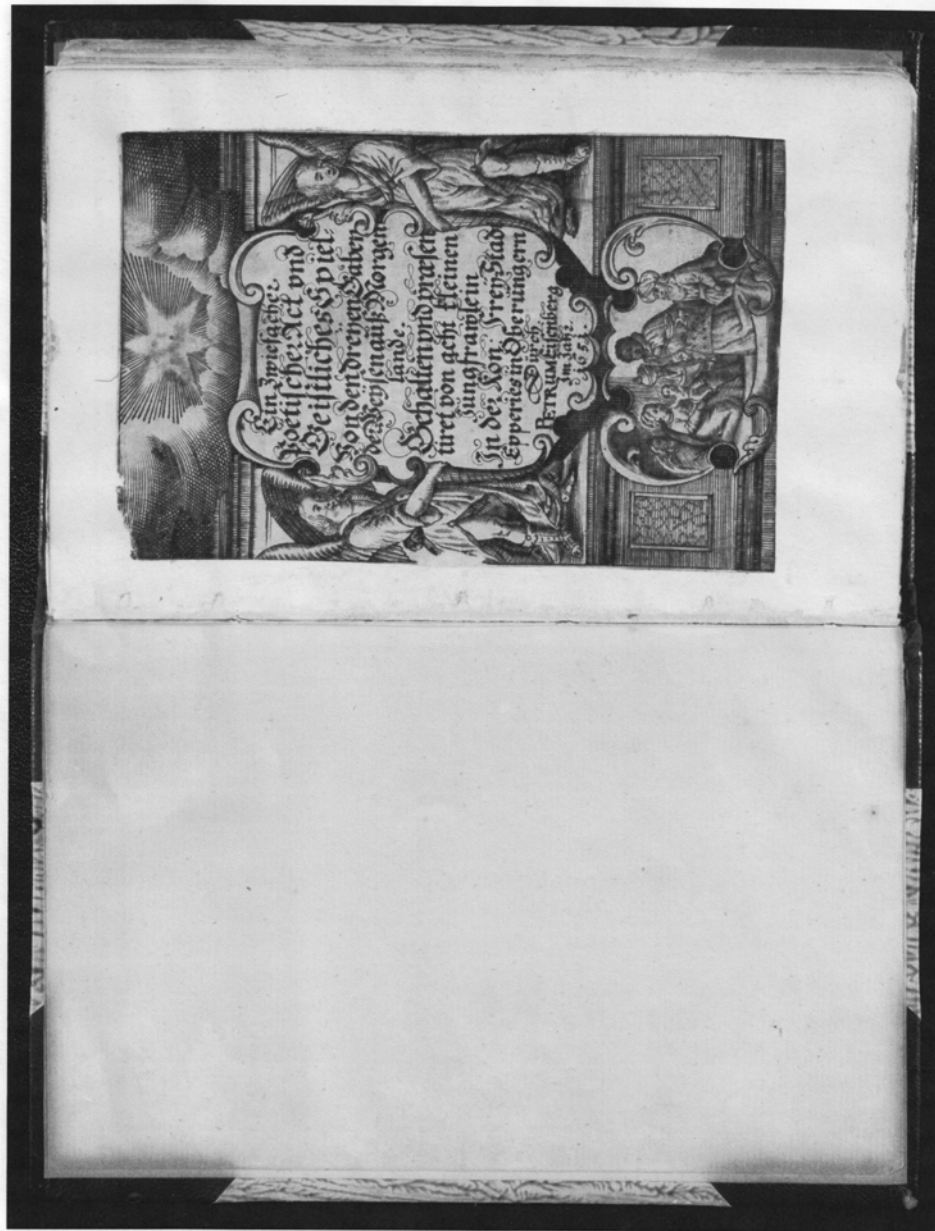 Ein Zwiefacher
Poetischer Act vnd
Geistliches Spiel.
Von den dreyen Gaben
der Weysen auß Morgen
lande.
Gehalten vnd præsen
tiret von acht kleinen
Jungfräwlein
In der Kön. Frey Stad
Epperies in Ober ungern
Durch
PETRUM Eisenberg
Im Jahr.
1651.